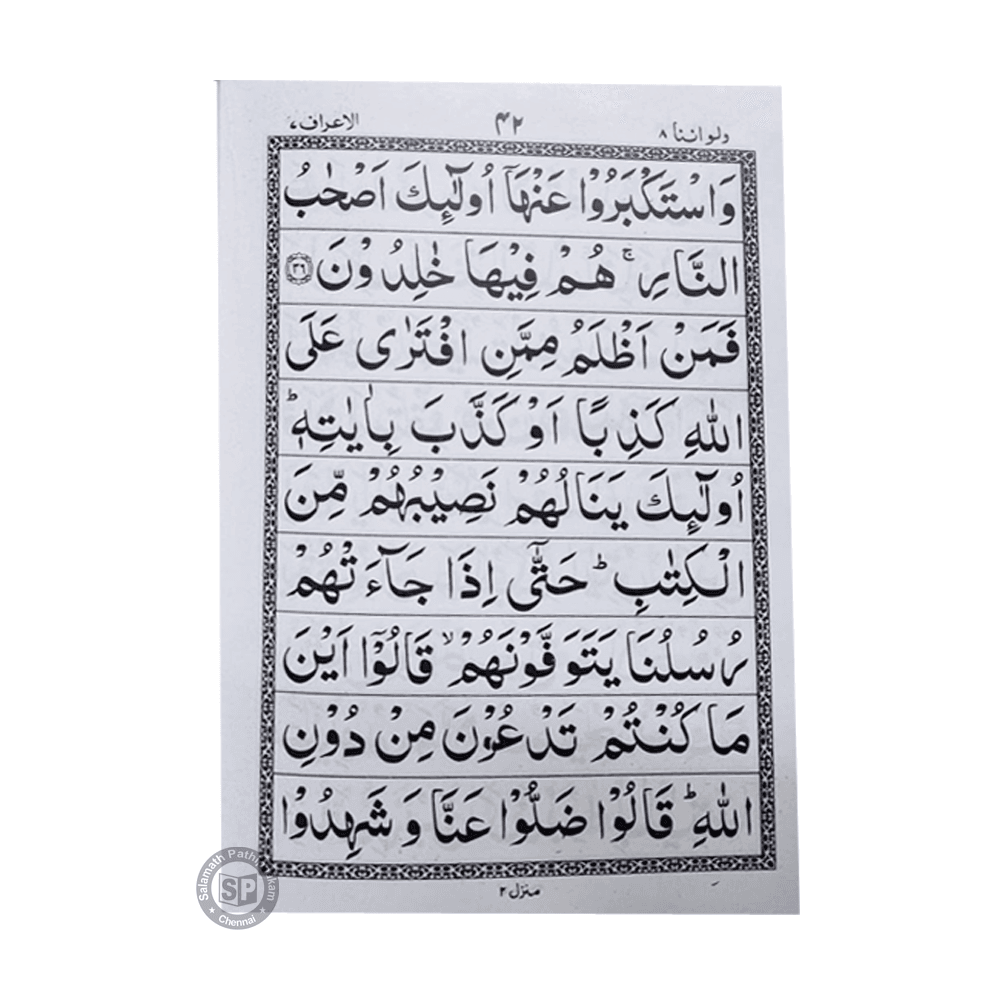 ولو اننا ٨ ۴۲ الاعراف ٧
وَاسْتَكْبَرُوْا عَنْهَاۤ اُولٰٓئِكَ اَصْحٰبُ
النَّارِ ۚ هُمْ فِيْهَا خٰلِدُوْنَ ٣٦
فَمَنْ اَظْلَمُ مِمَّنِ افْتَرٰى عَلَى
اللّٰهِ كَذِبًا اَوْ كَذَّبَ بِاٰيٰتِهٖ ؕ
اُولٰٓئِكَ يَنَالُهُمْ نَصِيْبُهُمْ مِّنَ
الْكِتٰبِ ؕ حَتّٰۤى اِذَا جَآءَتْهُمْ
رُسُلُنَا يَتَوَفَّوْنَهُمْ ۙ قَالُوْۤا اَيْنَ
مَا كُنْتُمْ تَدْعُوْنَ مِنْ دُوْنِ
اللّٰهِ ؕ قَالُوْا ضَلُّوْا عَنَّا وَ شَهِدُوْا
منزل ٢
SP
Chennai